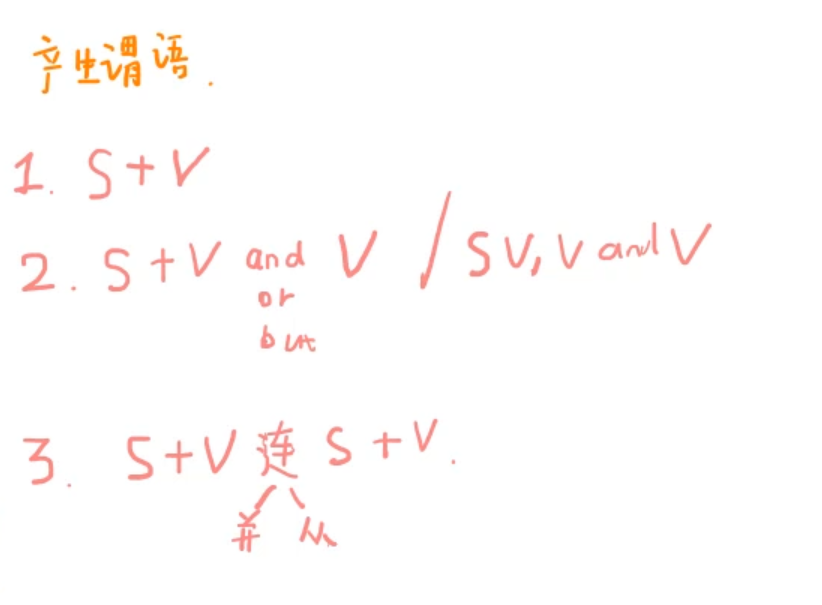 产生谓语.
1. S+V
2. S+V and V / SV, V and V
or
but
3. S+V 连 S+V.
并 从